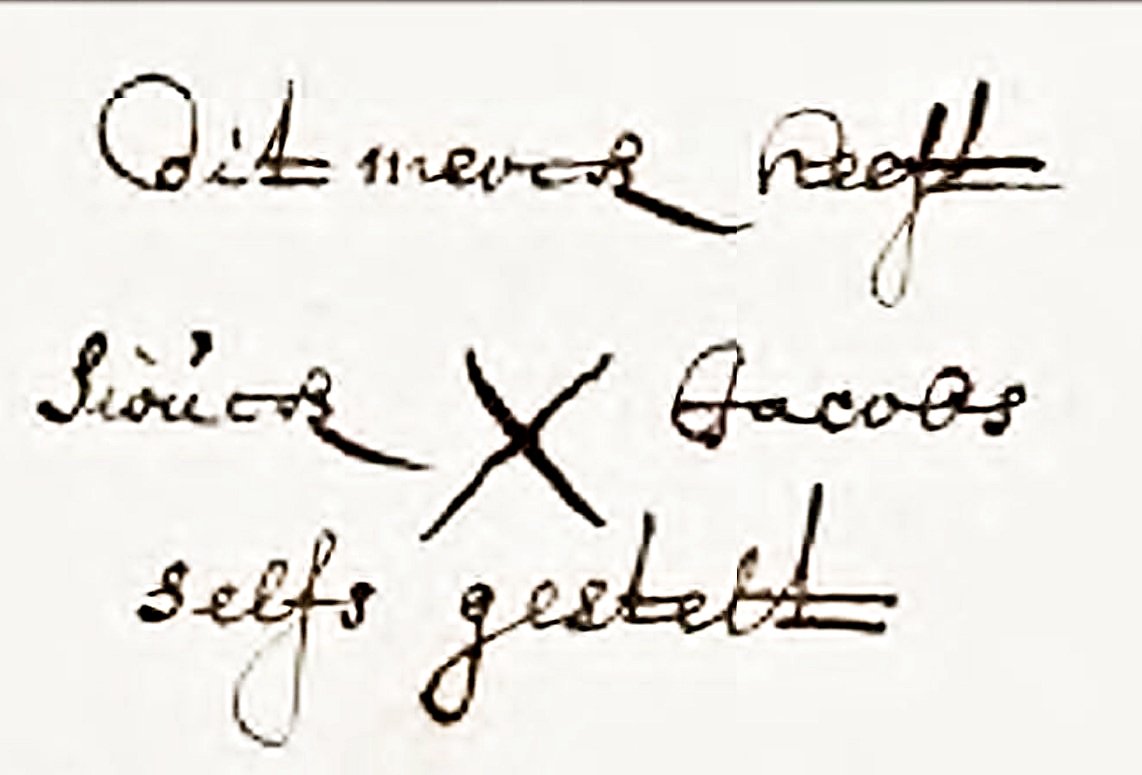 Dit merck heeft
Siouck X Jacobs
selfs gestelt